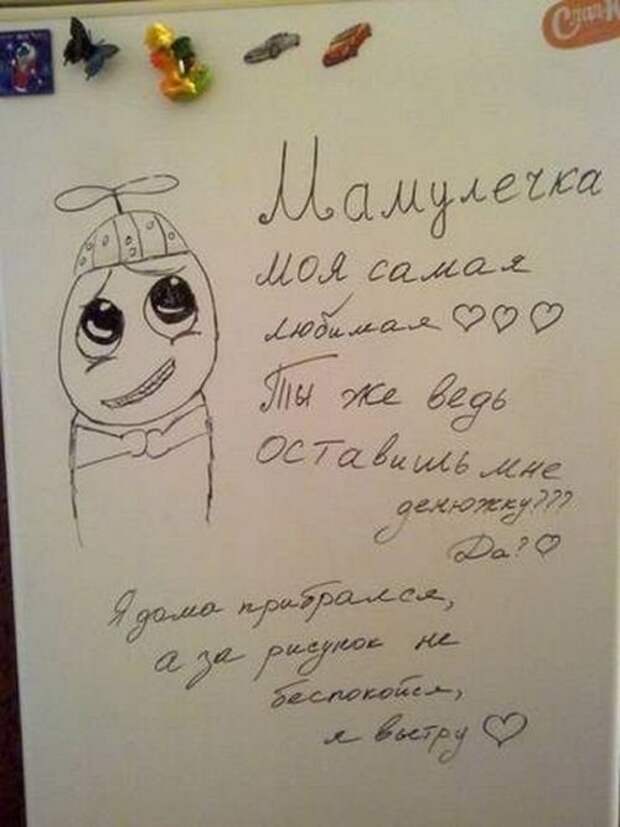 Слад
Мамулечка
моя самая
любимая ♡♡♡
Ты же ведь
оставишь мне
денюжку???
Да?♡
Я дома прибрался,
а за рисунок не
беспокойся,
я вытру ♡